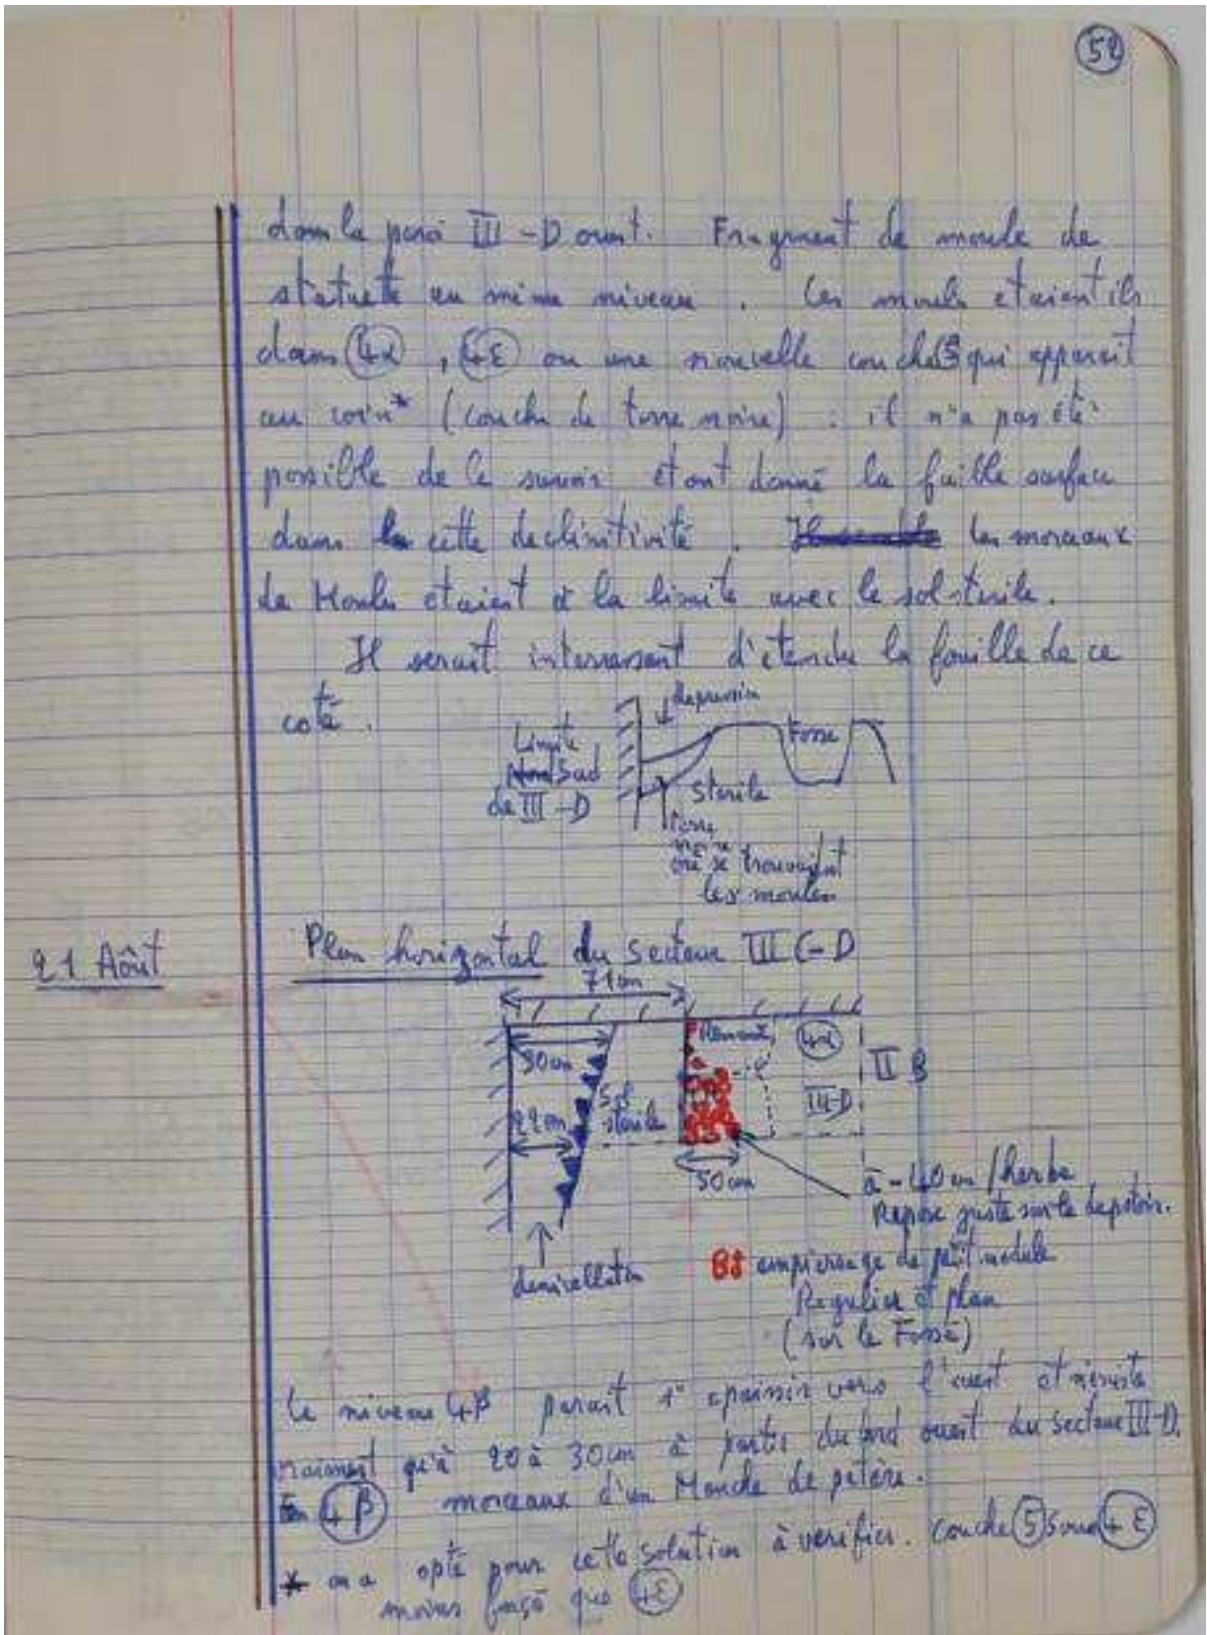 52
dans la paroi III-D ouest. Fragment de moule de
statuette au même niveau. Ces moules etaient ils
dans 4α, 4ε ou une nouvelle couche 5 qui apparait
au coin* (couche de terre noire) : il n'a pas été
possible de le savoir étant donné la faible surface
dans cette declinitivité. les morceaux
de Moules etaient à la limite avec le sol sterile.
Il serait interressant d'etendre la fouille de ce
coté.
depression
Limite
Sud
de III-D
Fosse
Sterile
Terre
noire
où se trouvaient
les moules
21 Août
Plan horizontal du secteur III C-D
71cm
30cm
22cm
Sol
sterile
4α
II B
III-D
50cm
à -40cm/herbe
Repose juste sur le depotoir.
denivellation
empierrage de petit module
Regulier et plan
(sur le Fossé)
Le niveau 4β parait s'epaissir vers l'ouest et n'existe
vraiment qu'à 20 à 30cm à partir du bord ouest du secteur III-D.
En 4β morceaux d'un Moule de
* on a opté pour cette solution à verifier. couche 5 sous 4ε
moins foncé que 4ε